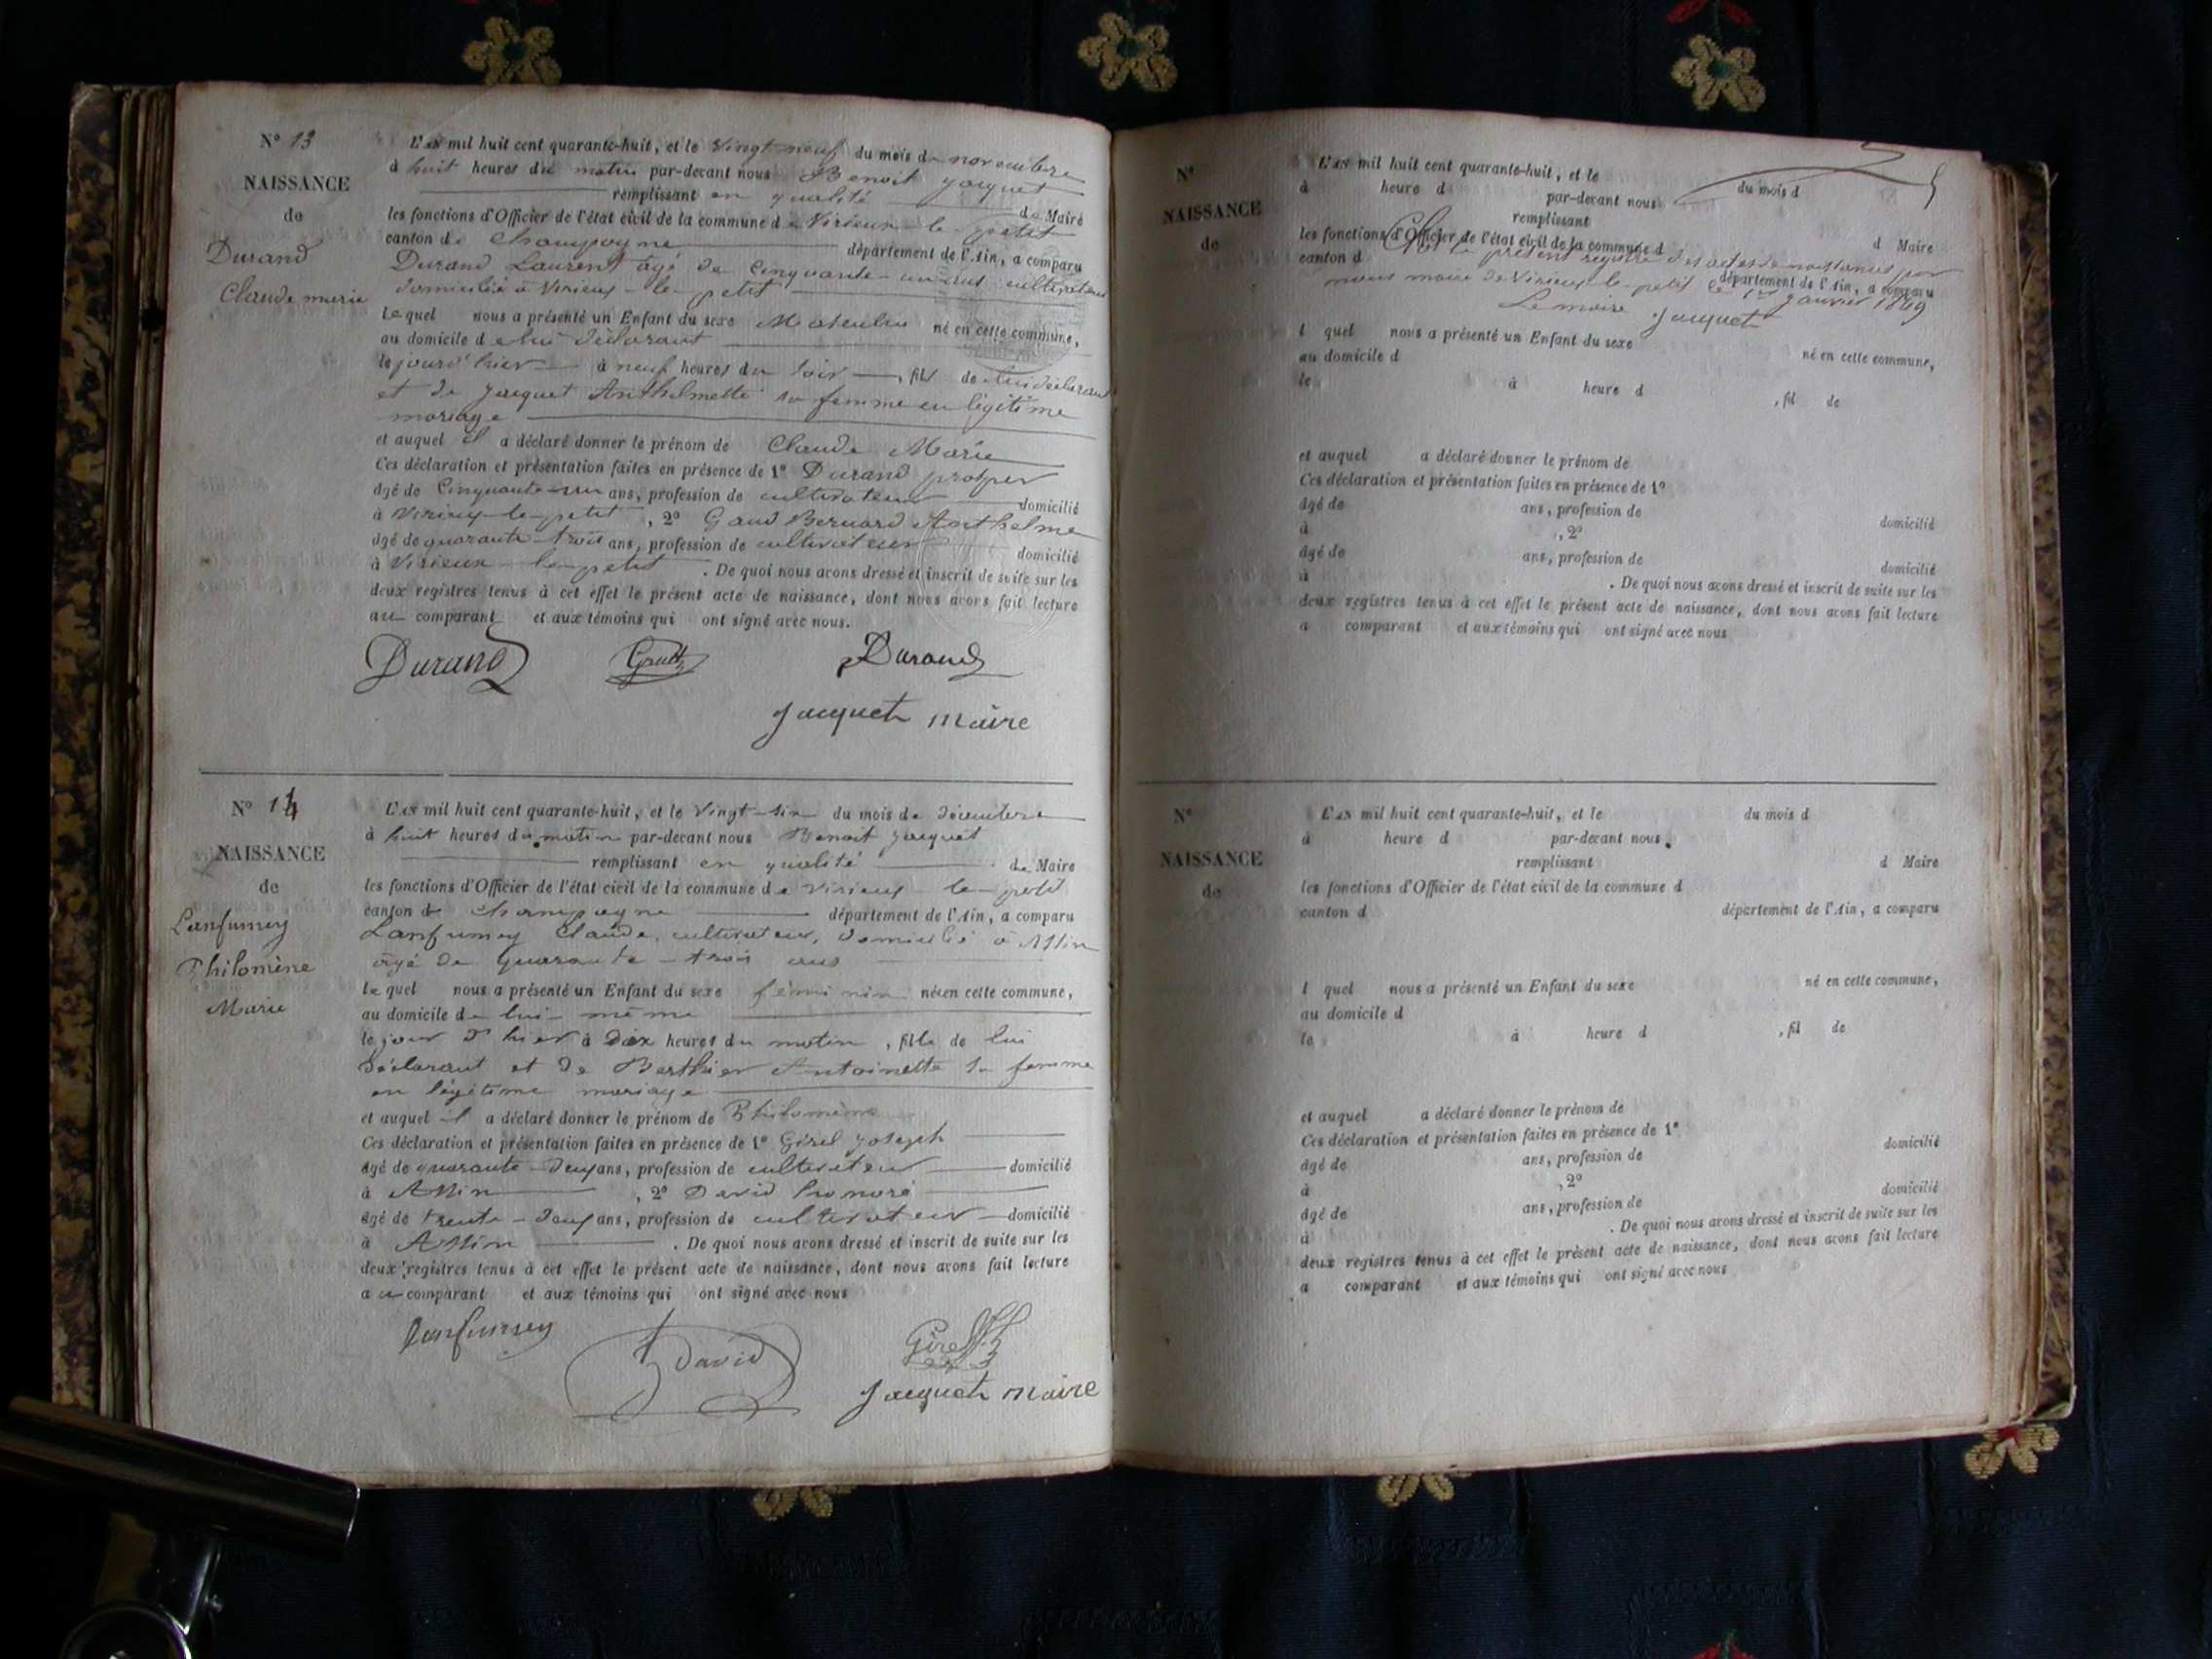 N° 13
NAISSANCE
de
Durand
Claude marie
L'AN mil huit cent quarante-huit, et le Vingt neuf du mois de novembre
à huit heures du matin par-devant nous Benoit Jacquet
remplissant en qualité de Maire
les fonctions d'Officier de l'état civil de la commune de Virieux-le-petit
canton de Champagne département de l'Ain, a comparu
Durand Laurent âgé de Cinquante-un ans cultivateur
domicilié à Virieux-le-petit
Lequel nous a présenté un Enfant du sexe Masculin né en cette commune,
au domicile de lui déclarant
le jour d'hier à neuf heures du soir, fils de lui déclarant
et de Jacquet Anthelmette sa femme en légitime
mariage
et auquel il a déclaré donner le prénom de Claude Marie
Ces déclaration et présentation faites en présence de 1° Durand prosper
âgé de Cinquante-un ans, profession de cultivateur domicilié
à Virieux-le-petit, 2° Gaud Bernard Anthelme
âgé de quarante-trois ans, profession de cultivateur domicilié
à Virieux-le-petit. De quoi nous avons dressé et inscrit de suite sur les
deux registres tenus à cet effet le présent acte de naissance, dont nous avons fait lecture
au comparant et aux témoins qui ont signé avec nous.
Durand Durand
Jacquet maire
N° 14
NAISSANCE
de
Lanfumey
Philomène
Marie
L'AN mil huit cent quarante-huit, et le Vingt-six du mois de décembre
à huit heures du matin par-devant nous Benoit Jacquet
remplissant en qualité de Maire
les fonctions d'Officier de l'état civil de la commune de Virieux-le-petit
canton de Champagne département de l'Ain, a comparu
Lanfumey Claude, cultivateur, domicilié à Assin
âgé de quarante-trois ans
lequel nous a présenté un Enfant du sexe féminin née en cette commune,
au domicile de lui-même
le jour d'hier à Dix heures du matin, fille de lui
déclarant et de Berthier Antoinette sa femme
en légitime mariage
et auquel il a déclaré donner le prénom de Philomène
Ces déclaration et présentation faites en présence de 1° Girel Joseph
âgé de quarante-deux ans, profession de cultivateur domicilié
à Assin, 2° David honoré
âgé de trente-deux ans, profession de cultivateur domicilié
à Assin. De quoi nous avons dressé et inscrit de suite sur les
deux registres tenus à cet effet le présent acte de naissance, dont nous avons fait lecture
au comparant et aux témoins qui ont signé avec nous
Lanfumey
David Girel
Jacquet maire
N°
NAISSANCE
de
L'AN mil huit cent quarante-huit, et le du mois d
à heure d par-devant nous
remplissant d Maire
les fonctions d'Officier de l'état civil de la commune d
canton d département de l'Ain, a comparu
Clos le présent registre des actes de naissances par
nous maire de Virieux-le-petit le 1er janvier 1849
Le maire Jacquet
l quel nous a présenté un Enfant du sexe né en cette commune,
au domicile d
le à heure d, fil de
et auquel a déclaré donner le prénom de
Ces déclaration et présentation faites en présence de 1°
âgé de ans, profession de domicilié
à, 2°
âgé de ans, profession de domicilié
à. De quoi nous avons dressé et inscrit de suite sur les
deux registres tenus à cet effet le présent acte de naissance, dont nous avons fait lecture
a comparant et aux témoins qui ont signé avec nous
N°
NAISSANCE
de
L'AN mil huit cent quarante-huit, et le du mois d
à heure d par-devant nous
remplissant d Maire
les fonctions d'Officier de l'état civil de la commune d
canton d département de l'Ain, a comparu
l quel nous a présenté un Enfant du sexe né en cette commune,
au domicile d
le à heure d, fil de
et auquel a déclaré donner le prénom de
Ces déclaration et présentation faites en présence de 1°
âgé de ans, profession de domicilié
à, 2°
âgé de ans, profession de domicilié
à. De quoi nous avons dressé et inscrit de suite sur les
deux registres tenus à cet effet le présent acte de naissance, dont nous avons fait lecture
a comparant et aux témoins qui ont signé avec nous